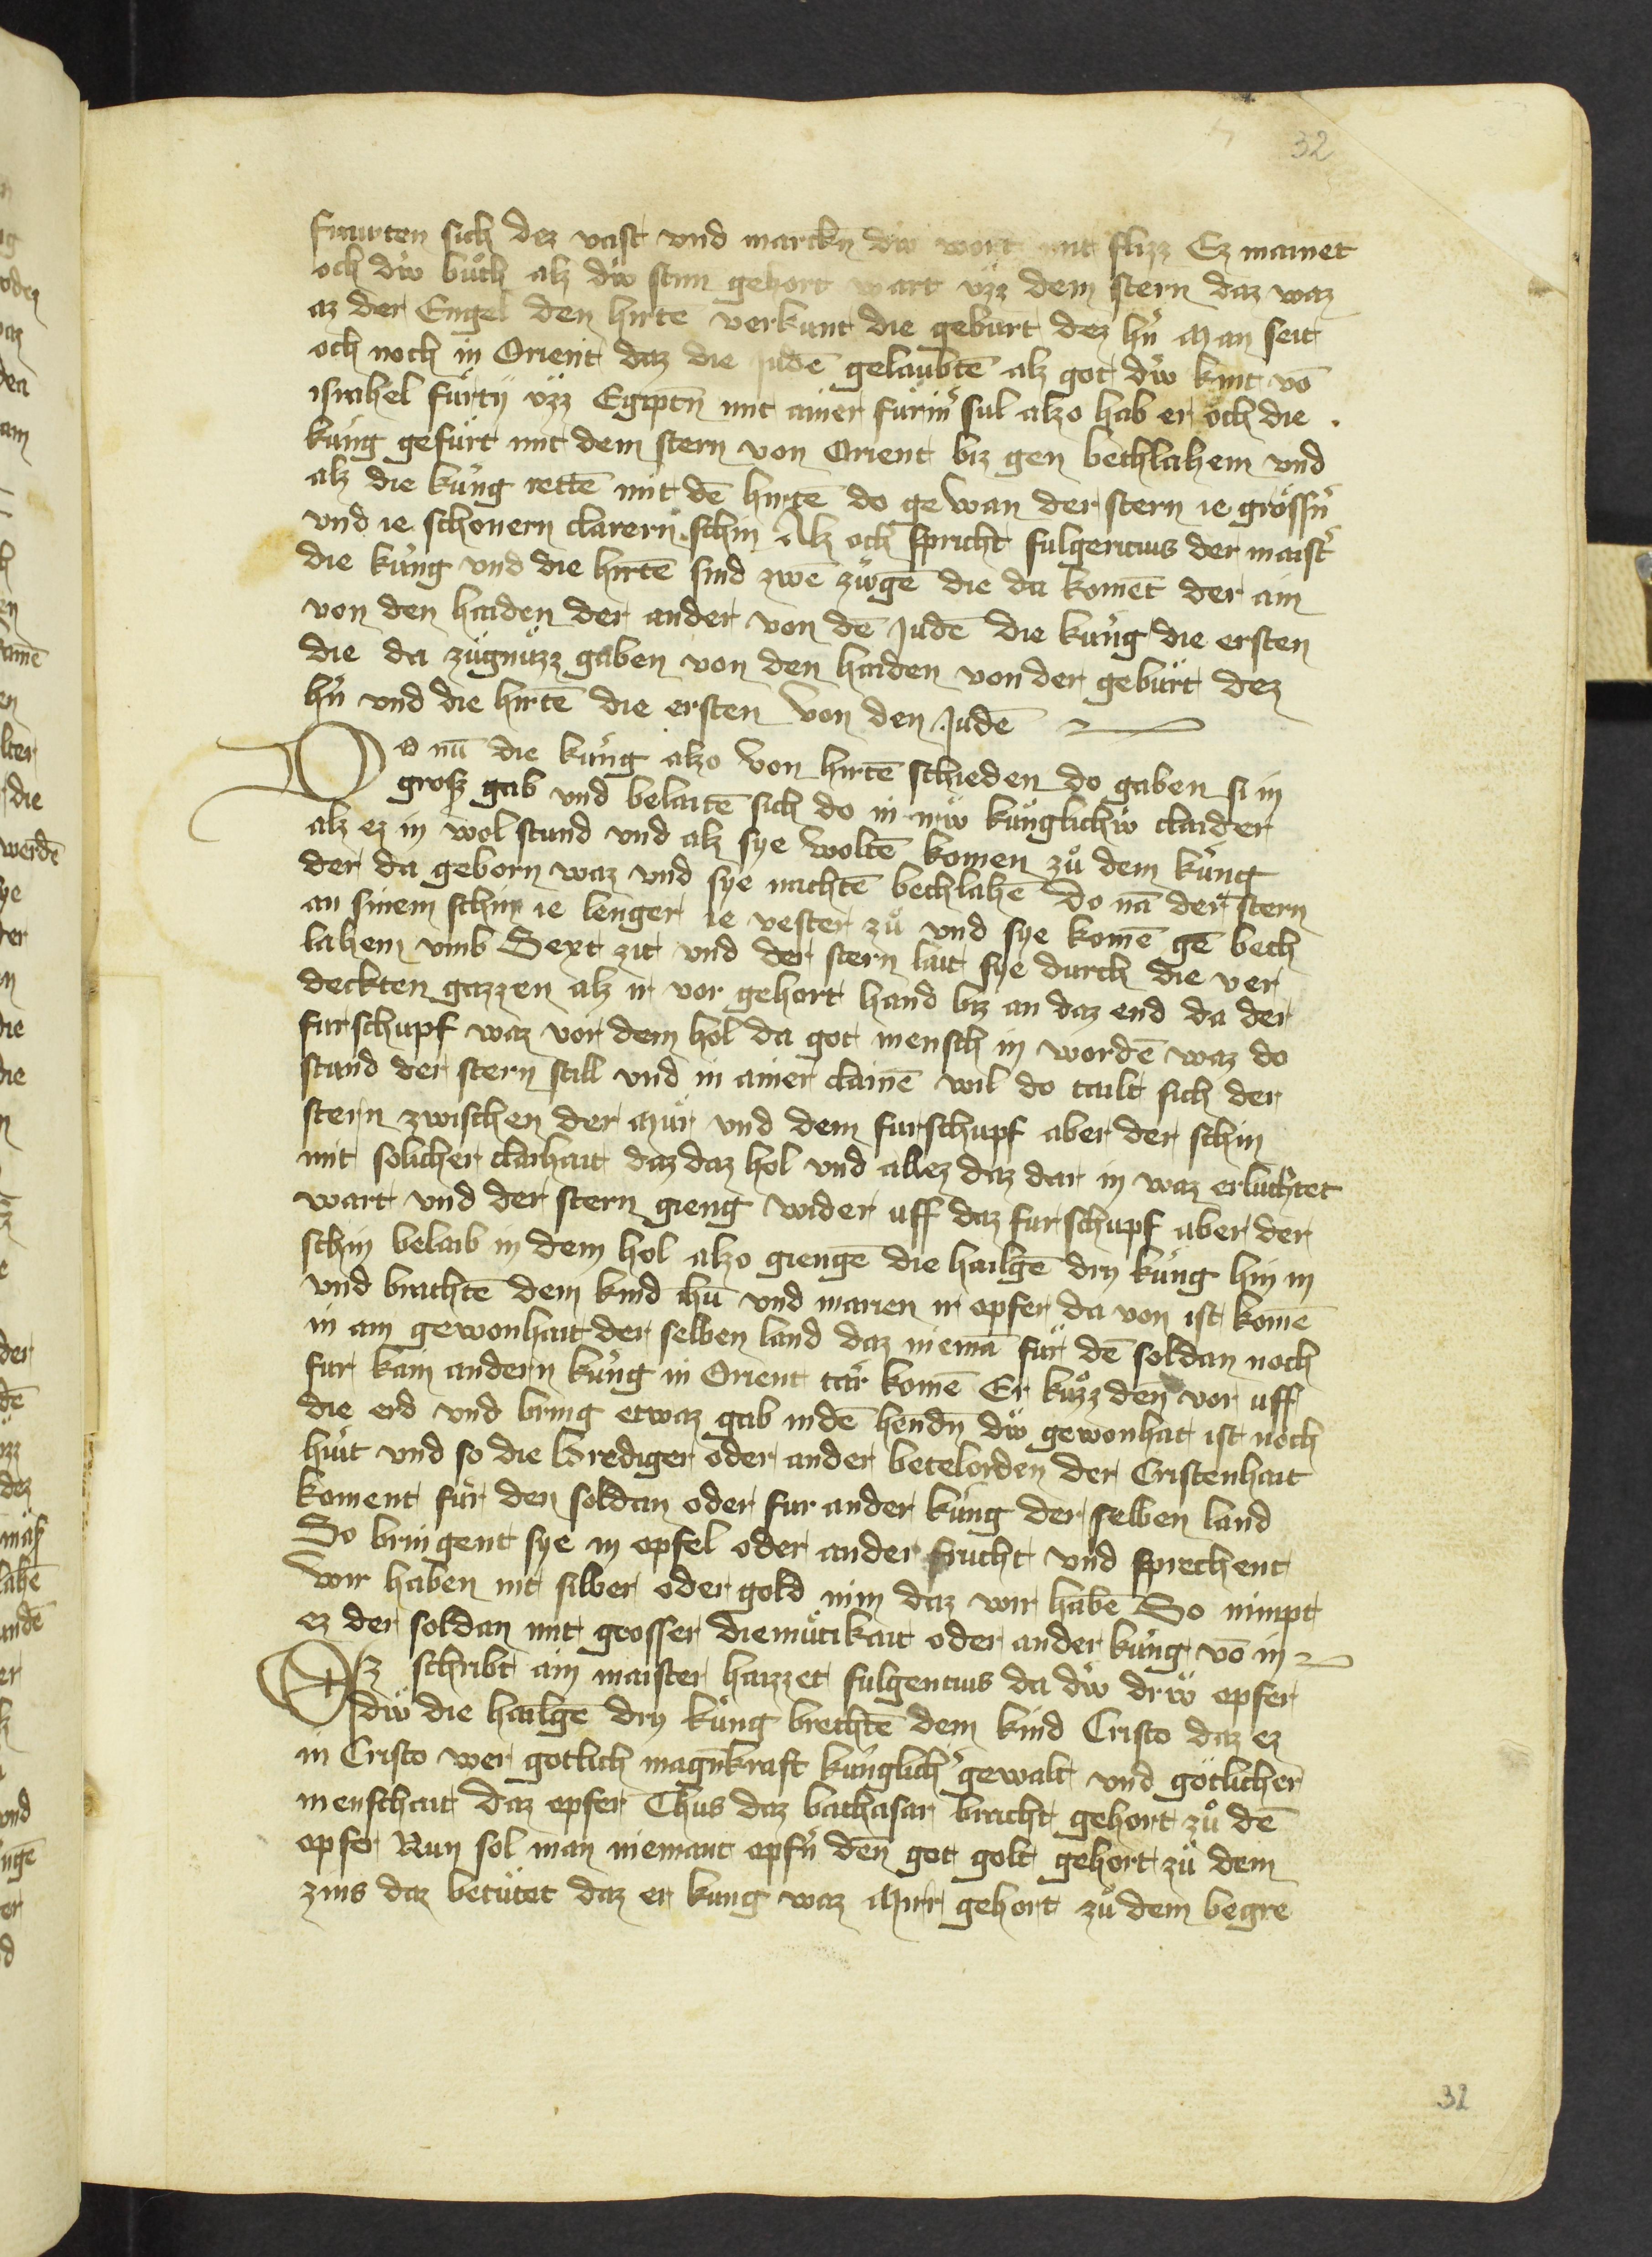 32
sich dez vast vnd marckn̄ dẅ wort mit flizz Ez mainet
och dẅ bůch alz dẅ stim gehort wart vzz dem stern daz waz
az der Engel den hirtē verkunt die geburt dez hn̄ Man seit
och noch in Orient daz die judē gelaubtē alz got dẅ kint vō
israhel fürty vzz Egiptn̄ mit ainer fürin̄ sul alzo hab er och die
küng gefürt mit dem stern von Orient biz gen bethlahem vnd
alz die küng rettē mit dē hirtē do gewan der stern ie grössn̄
vnd ie schonern clarern schin Alz och spricht fulgencius der maist̄
die küng vnd die hirtē sind zwē zügē die da koment der ain
von den haiden der ander von dē judē die küng die ersten
die da zügnüzz gaben von den haiden von der geburt dez
hn̄ vnd die hirtē die ersten von den judē
Do nū die küng alzo von hirtē schieden do gaben si in
grosz gab vnd belaitē sich do in nẅ künglichẅ claider
alz ez in wol stund vnd alz sye woltē komen zů dem küng
der da geborn waz vnd sye nachtē bethlahē do nā der stern
an sinem schin ie lenger ie vester zů vnd sye komē gē beth
lahem vmb Sext zit vnd der stern lait sye durch die ver
deckten gazzen alz ir vor gehort hand biz an daz end da der
furschupf waz vor dem hol da got mensch in wordē waz do
stund der stern still vnd in ainer clainē wil do tailt sich der
stern zwischen der Mür vnd dem furschupf aber der schin
mit solicher clarhait daz daz hol vnd allez daz dar in waz erlüchtet
wart vnd der stern gieng wider uff daz furschupf aber der
schin belaib in dem hol alzo giengē die hailgē dry küng hin in
vnd brachtē dem kind ihū vnd marien ir opfer da von ist komē
in ain gewonhait der selben land daz niemā für dē soldan noch
fur kain andern küng in Orient tar komē Er küzz den vor uff
die erd vnd bring etwaz gab in dē hendn̄ dẅ gewonhat ist noch
hüt vnd so die brediger oder ander betelorden der Cristenhait
koment für den soldan oder fur ander küng der selben land
So bringent sye in opfel oder ander frucht vnd sprechent
wir haben nit silber oder gold nim daz wir habē So nimpt
ez der soldan mit grosser diemütikait oder ander küng vō in
Ez schribt ain maister haizzet fulgencius da dẅ drẅ opfer
dẅ die hailgē dry küng brechtē dem kind Cristo daz ez
in Cristo wer gotlich magn̄kraft künglich̄ gewalt vnd götlicher
menschait daz opfer Thus daz bathasar bracht gehort zů dē
opfer Nun sol man niemant opfn̄ den̄ got golt gehort zů dem
zins daz betütet daz er kung waz Mirr gehort zů dem begre
32